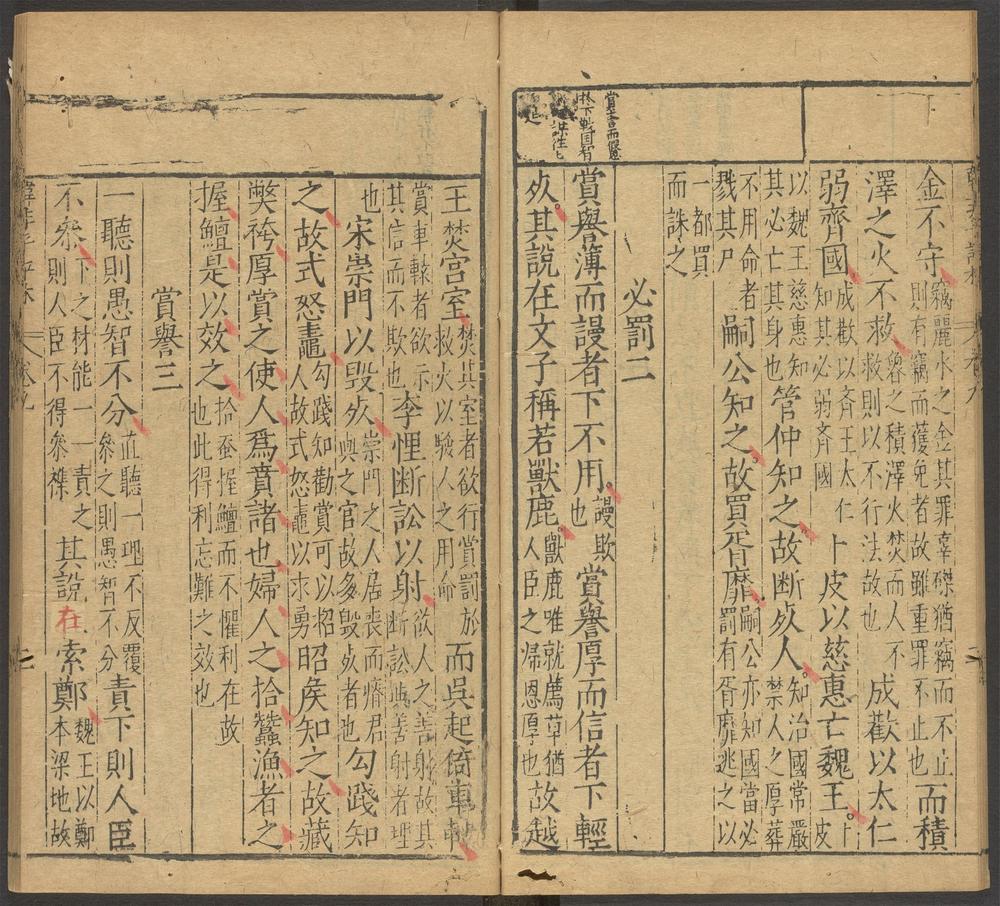 賞譽而慢
於下戰國智
金不守竊麗水之金其罪辜磔猶竊而不止則有竊而獲免者故雖重罪不止也而積
澤之火不救魯之積澤火焚而人不救救則以不行法故也成歡以太仁
弱齊國成歡以齊王太仁知其必弱齊國卜皮以慈惠亡魏王卜皮
以魏王慈惠知其必亡其身也管仲知之故断死人知治國常嚴禁人之厚葬
不用命者戮其尸嗣公知之故買胥靡嗣公亦知國當必罰有胥靡逃之以
一都買而誅之
必罰二
賞譽薄而謾者下不用謾欺也賞譽厚而信者下輕
死其說在文子稱若獸鹿獸鹿唯就薦草猶人臣之歸恩厚也故越
王焚宮室焚其室者欲行賞罰於救火以驗人之用命而吳起倚車轅
賞車轅者欲示其信而不欺也李悝断訟以射欲人之善射故其断訟與善射者理
也宋崇門以毀死崇門之人居喪而瘠君與之官故多毀死者也勾踐知
之故式怒鼃勾踐知勸賞可以招人故式怒鼃以求勇昭矦知之故藏
獘袴厚賞之使人爲賁諸也婦人之拾蠶漁者之
握鱣是以效之拾蚕握鱣而不懼利在故也此得利忘難之效也
賞譽三
一聽則愚智不分直聽一理不反覆參之則愚智不分責下則人臣
不參下之材能一一責之則人臣不得參襍其說在索鄭魏王以鄭本梁地故